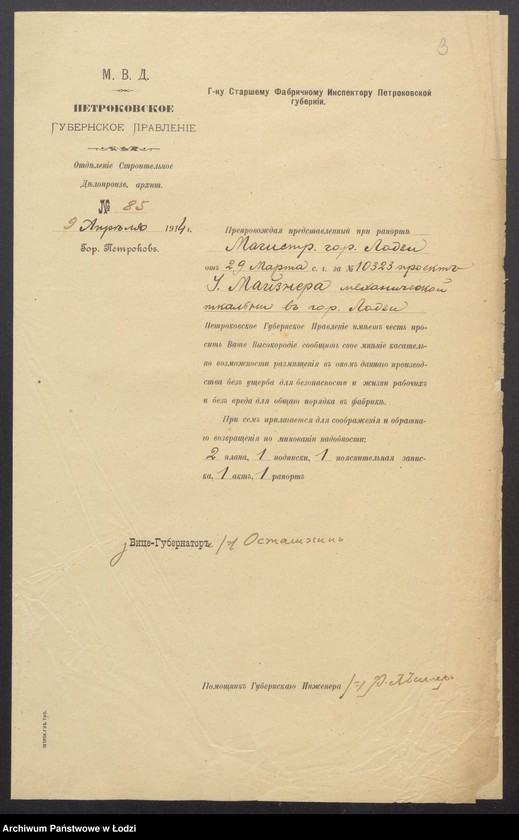 3
М. В. Д.
ПЕТРОКОВСКОЕ
ГУБЕРНСКОЕ ПРАВЛЕНІЕ
Отдѣленіе Строительное
Дѣлопроизв. архит.
№ 85
9 Апрѣля 1914 г.
Гор. Петроковъ.
Г-ну Старшему Фабричному Инспектору Петроковской
губерніи.
Препровождая представленный при рапортѣ
Магистр. гор. Лодзи
отъ 29 Марта с. г. за № 10323 проектъ
I. Майзнера механической
ткальни въ гор. Лодзи
Петроковское Губернское Правленіе имѣетъ честь про-
сить Ваше Высокородіе сообщить свое мнѣніе касатель-
но возможности размѣщенія въ ономъ даннаго производ-
ства безъ ущерба для безопасности и жизни рабочихъ
и безъ вреда для общаго порядка въ фабрикѣ.
При семъ прилагается для соображенія и обратна-
го возвращенія по минованіи надобности:
2 плана, 1 подписки, 1 пояснительная запис-
ка, 1 актъ, 1 рапортъ
Вице-Губернаторъ
Помощникъ Губернскаго Инженера
ПЕТРОК. ГУБ. ТИП.
Archiwum Państwowe w Łodzi